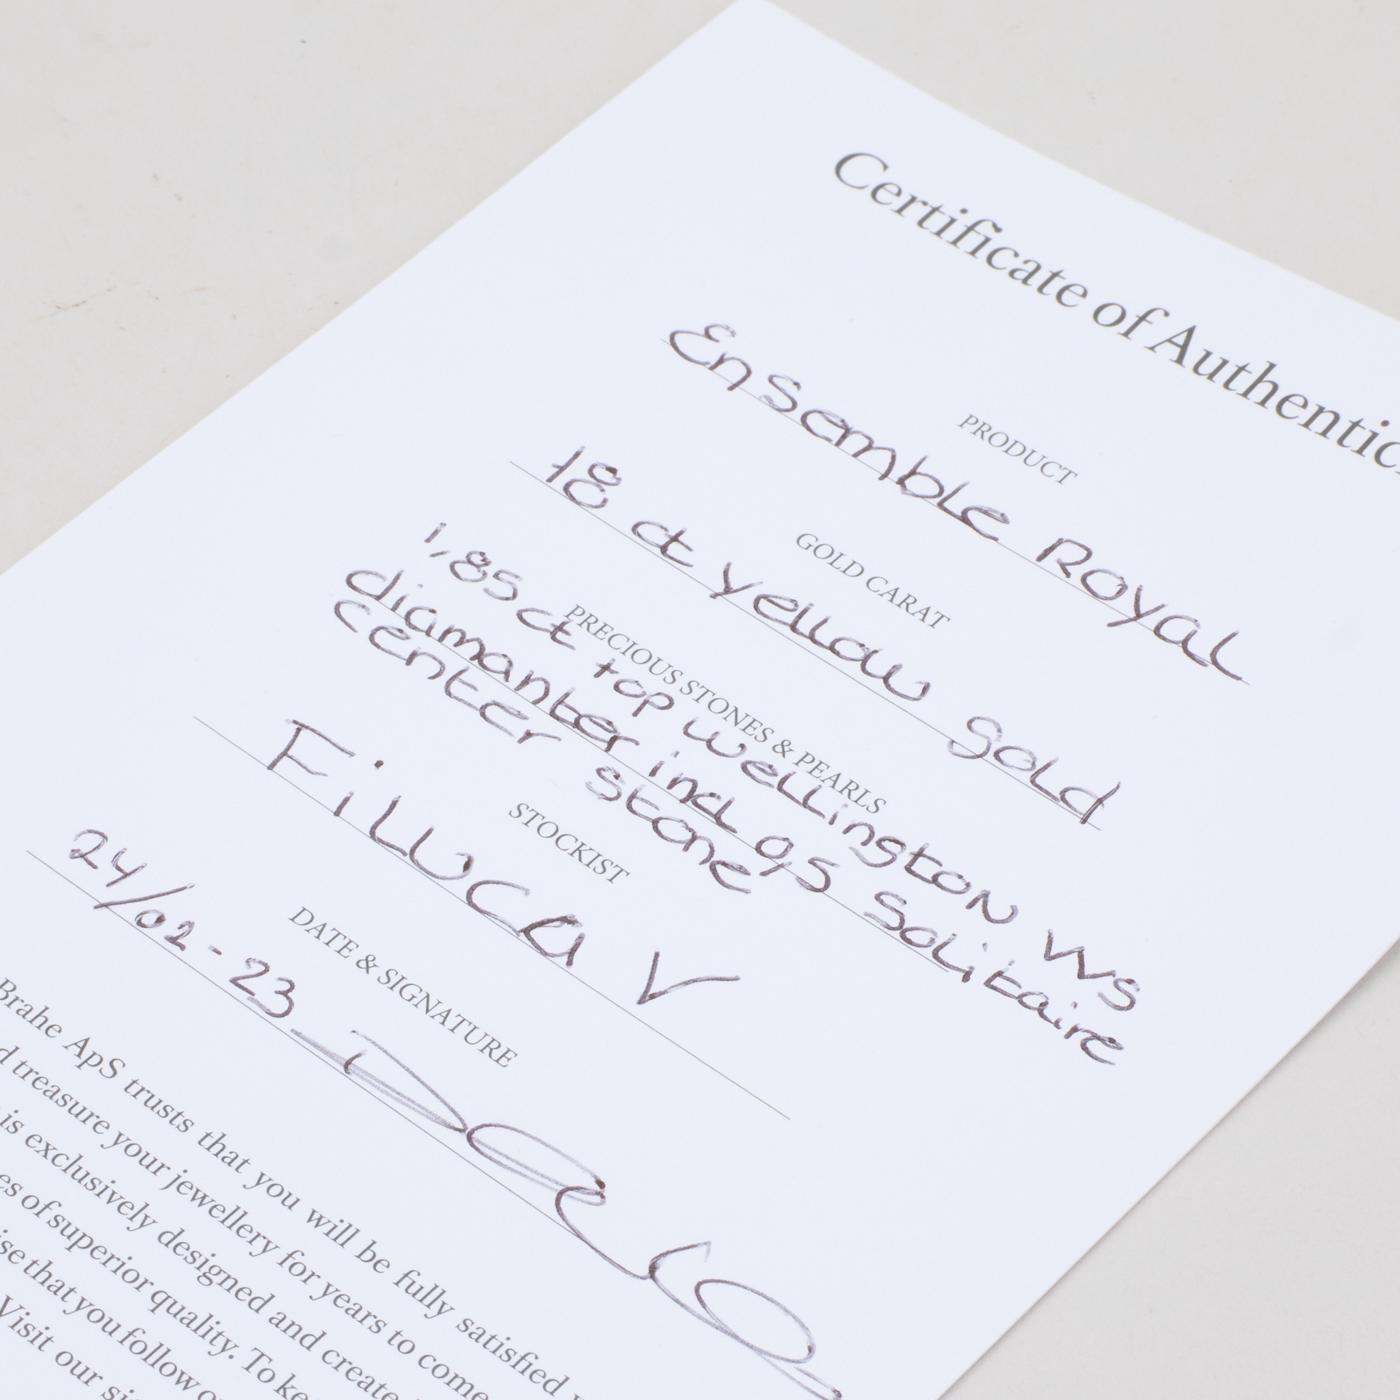 Certificate of Authentic
Ensemble Royal
PRODUCT
18 ct yellow gold
GOLD CARAT
1,85 ct top wellington VVS
diamanter incl 95 Solitaire
center stone
PRECIOUS STONES & PEARLS
FiLUCA V
STOCKIST
24/02-23
DATE & SIGNATURE
Brahe ApS trusts that you will be fully satisfied
treasure your jewellery for years to come
is exclusively designed and create
of superior quality. To ke
that you follow o
Visit our si